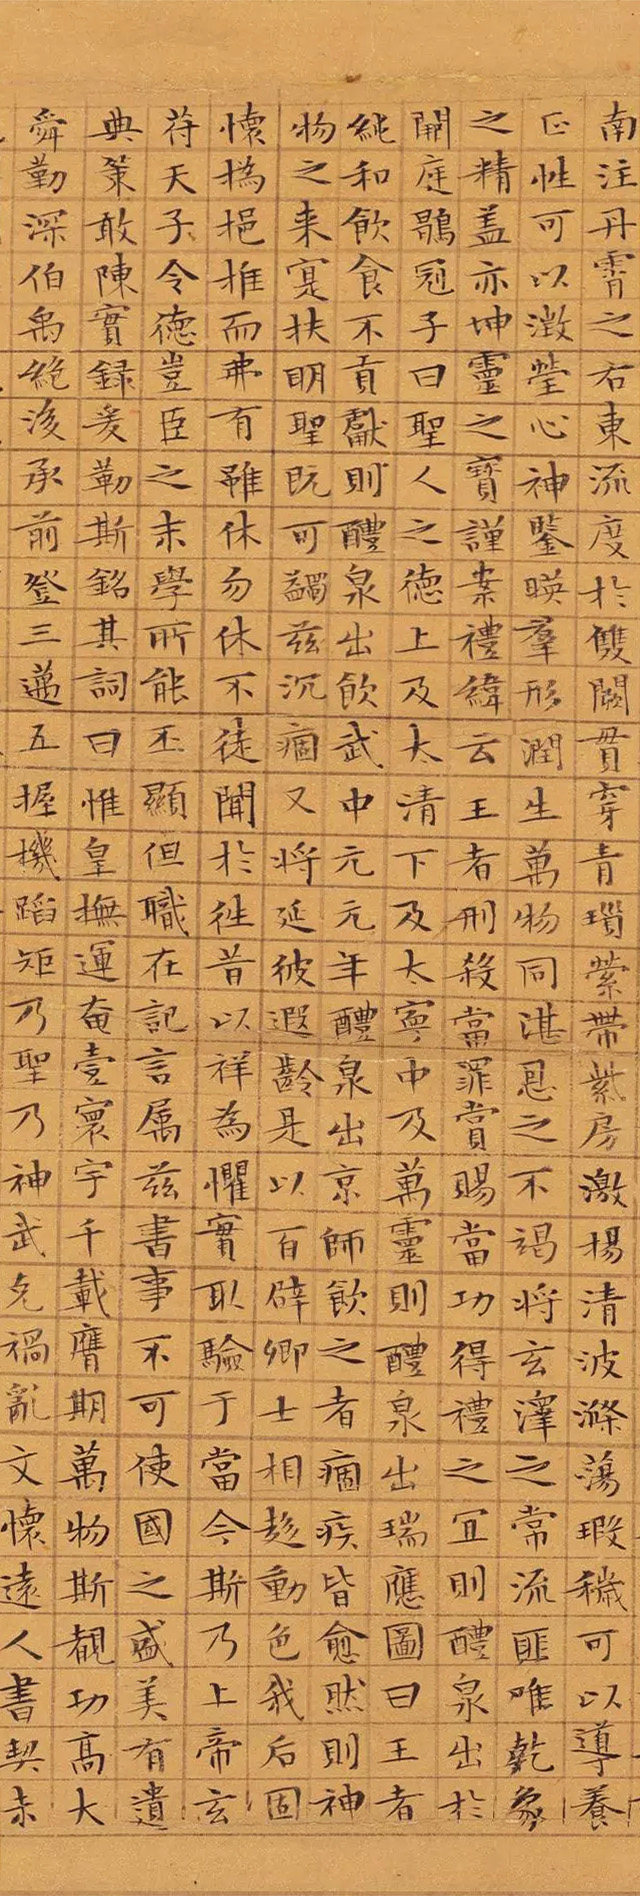 南注丹霄之右東流度於雙闕貫穿青瑣縈帶紫房激揚清波滌蕩瑕穢可以導養
正性可以澂瑩心神鑒暎羣形潤生萬物同湛恩之不竭將玄澤之常流匪唯乾象
之精蓋亦坤靈之寶謹案禮緯云王者刑殺當罪賞賜當功得禮之宜則醴泉出於
闕庭鶡冠子曰聖人之德上及太清下及太寧中及萬靈則醴泉出瑞應圖曰王者
純和飲食不貢獻則醴泉出飲武中元元年醴泉出京師飲之者痼疾皆愈然則神
物之来寔扶明聖既可蠲茲沉痼又將延彼遐齡是以百辟卿士相趍動色我后固
懷撝挹推而弗有雖休勿休不徒聞於往昔以祥為懼實取驗于當今斯乃上帝玄
符天子令德豈臣之末學所能丕顯但職在記言属茲書事不可使國之盛美有遺
典策敢陳實録爰勒斯銘其詞曰惟皇撫運奄壹寰宇千載膺期萬物斯覩功高大
舜勤深伯禹絶後承前登三邁五握機蹈矩乃聖乃神武克禍亂文懷遠人書契未